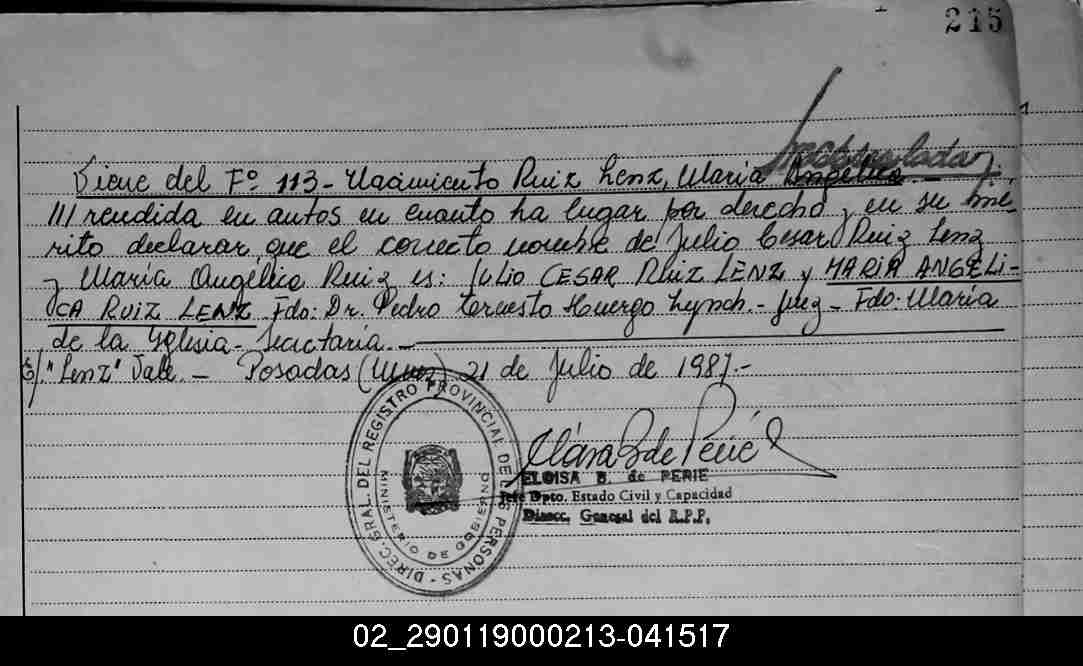 215
Viene del Fº 113 - Nacimiento Ruiz Lenz, María Angélica. -
/// rendida en autos en cuanto ha lugar por derecho y en su mé-
rito declarar que el correcto nombre de Julio Cesar Ruiz Lenz
y María Angélica Ruiz es: JULIO CESAR RUIZ LENZ y MARIA ANGELI-
CA RUIZ LENZ. Fdo: Dr. Pedro Ernesto Huergo Lynch. - Juez - Fdo: María
de la Iglesia - Secretaría. -
"Lenz" Vale. - Posadas (Mnes) 21 de Julio de 1987. -
DIREC. GRAL. DEL REGISTRO PROVINCIAL DE LAS PERSONAS -
MINISTERIO DE GOBIERNO
ELOISA B. de PERIE
Jefe Dpto. Estado Civil y Capacidad
Direcc. General del R.P.P.
02_290119000213-041517